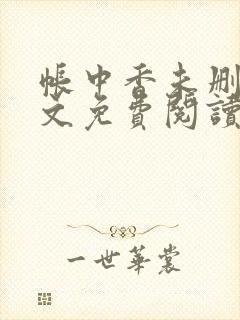 帳中香未删
文免費閱讀
一世華裳